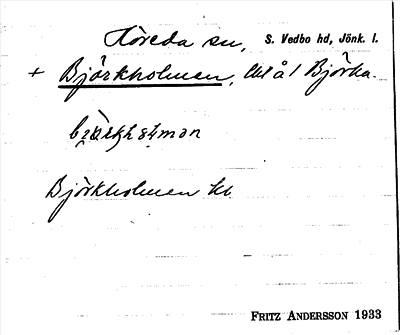 Höreda sn, S. Vedbo hd, Jönk. l.
+ Björkholmen, å 1 Björka.
Björkholmen kl.
FRITZ ANDERSSON 1933